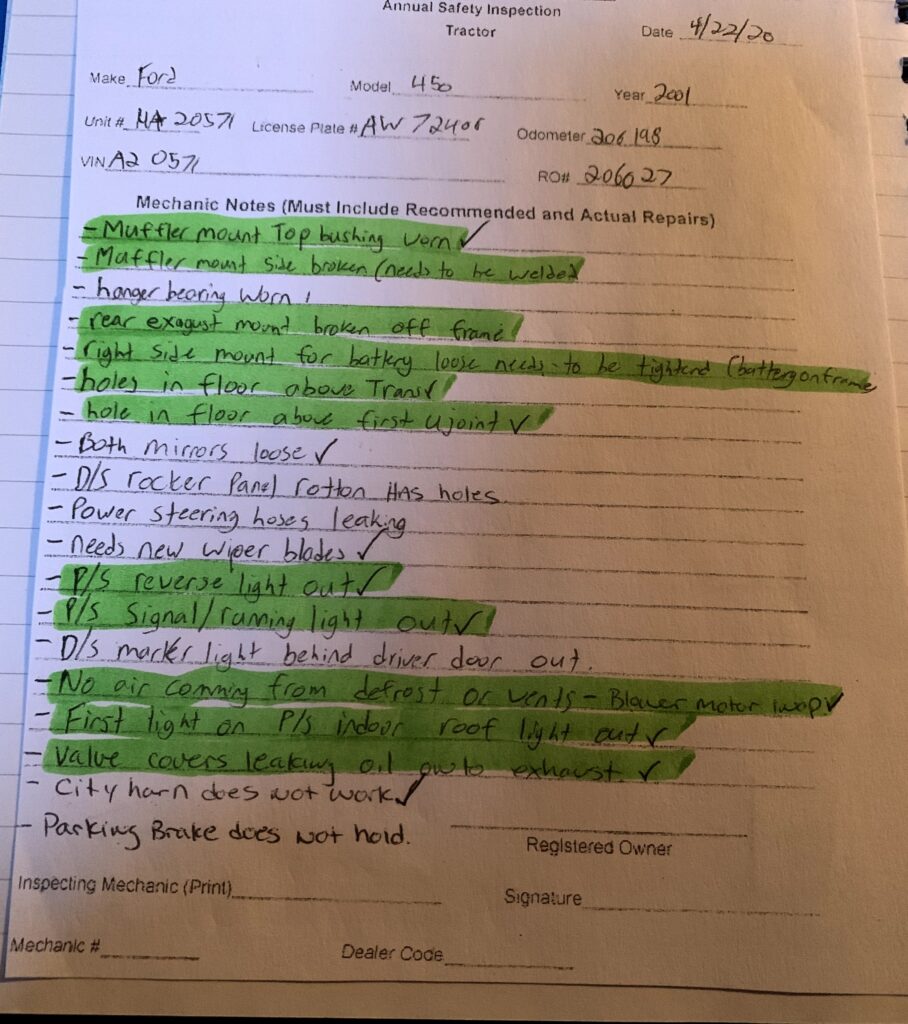 Annual Safety Inspection
Tractor
Date 4/22/20
Make Ford Model 450 Year 2001
Unit # 20571 License Plate # AW 72406 Odometer 206 198
VIN A2 0571 RO# 206027
Mechanic Notes (Must Include Recommended and Actual Repairs)
- Muffler mount Top bushing worn ✓
- Muffler mount side broken (needs to be welded
- hanger bearing worn
- rear exagust mount broken off frame
- right side mount for battery loose needs to be tightend (battery on frame
- holes in floor above Trans ✓
- hole in floor above first ujoint ✓
- Both mirrors loose ✓
- D/S rocker Panel rotton HAS holes
- Power steering hoses leaking
- needs new wiper blades ✓
- P/S reverse light out ✓
- P/S Signal/running light out ✓
- D/S marker light behind driver door out.
- No air comming from defrost or vents - Blower motor inop ✓
- First light on P/S indoor roof light out ✓
- Valve covers leaking oil onto exhaust ✓
- City harn does not work ✓
- Parking Brake does not hold.
Registered Owner
Inspecting Mechanic (Print) Signature
Mechanic # Dealer Code